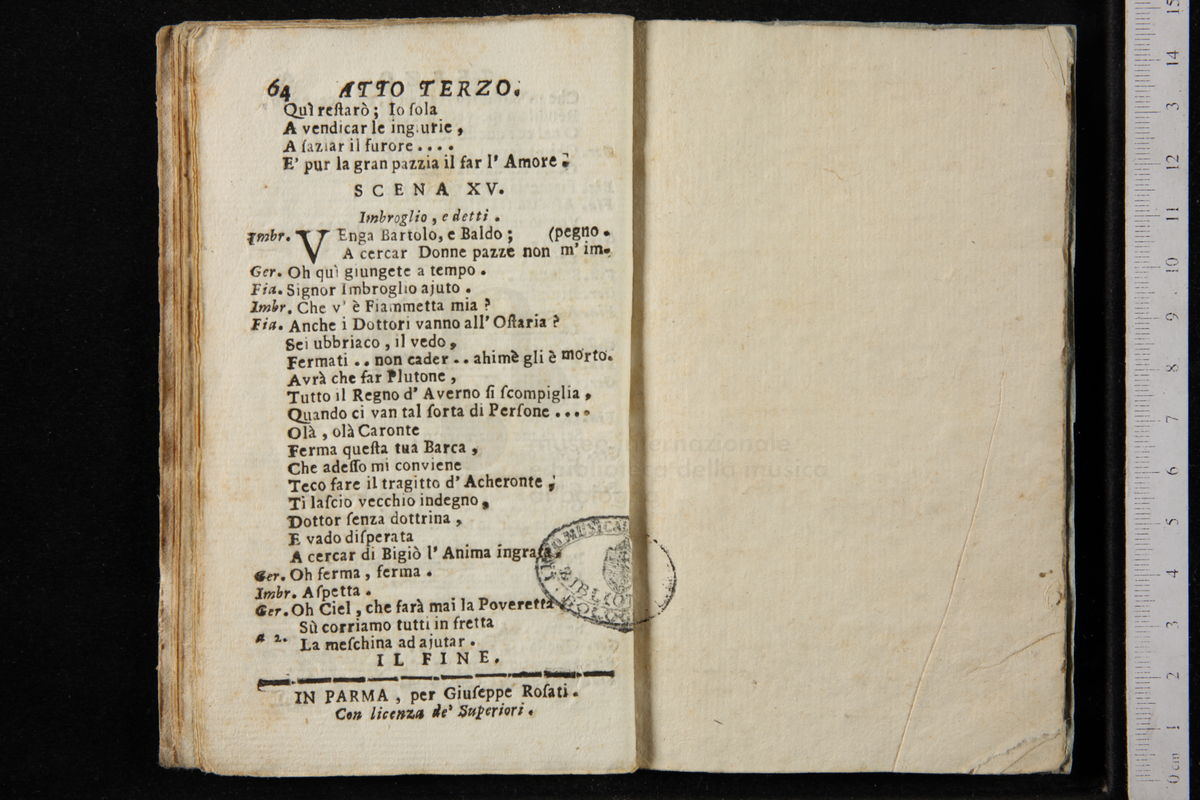 64 ATTO TERZO.
Quì reſtarò; Io ſola
A vendicar le ingiurie,
A ſaziar il furore....
E' pur la gran pazzia il far l' Amore;
SCENA XV.
Imbroglio, e detti.
Imbr. VEnga Bartolo, e Baldo; (pegno.
A cercar Donne pazze non m' im-
Ger. Oh quì giungete a tempo.
Fia. Signor Imbroglio ajuto.
Imbr. Che v' è Fiammetta mia?
Fia. Anche i Dottori vanno all' Oſtaria?
Sei ubbriaco, il vedo,
Fermati .. non cader .. ahimè gli è morto.
Avrà che far Plutone,
Tutto il Regno d' Averno ſi ſcompiglia,
Quando ci van tal ſorta di Perſone....
Olà, olà Caronte
Ferma queſta tua Barca,
Che adeſſo mi conviene
Teco fare il tragitto d' Acheronte;
Ti laſcio vecchio indegno,
Dottor ſenza dottrina,
E vado diſperata
A cercar di Bigiò l' Anima ingrata.
Ger. Oh ferma, ferma.
Imbr. Aſpetta.
Ger. Oh Ciel, che farà mai la Poveretta
Sù corriamo tutti in fretta
a 2. La meſchina ad ajutar.
IL FINE.
IN PARMA, per Giuſeppe Roſati.
Con licenza de' Superiori.
museo internazionale
e biblioteca della musica
di bologna
LICEO MUSICALE
BIBLIOTECA
BOLOGNA
0 cm 1 2 3 4 5 6 7 8 9 10 11 12 3 14 15